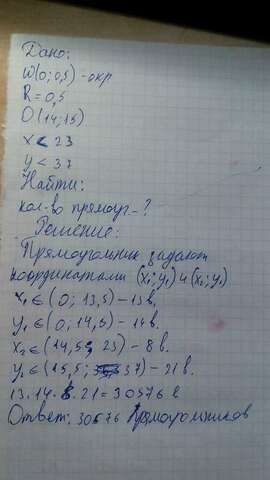 Дано:
W(0; 0,5) - окр
R = 0,5
O(14; 15)
x < 23
y < 37
Найти:
кол-во прямоуг. - ?
Решение:
Прямоугольник задают
координатами (x₁; y₁) и (x₂; y₂)
x₁ ∈ (0; 13,5) - 13 в.
y₁ ∈ (0, 14,5) - 14 в.
x₂ ∈ (14,5; 23) - 8 в.
y₂ ∈ (15,5; 37) - 21 в.
13 · 14 · 8 · 21 = 30576
Ответ: 30576 прямоугольников